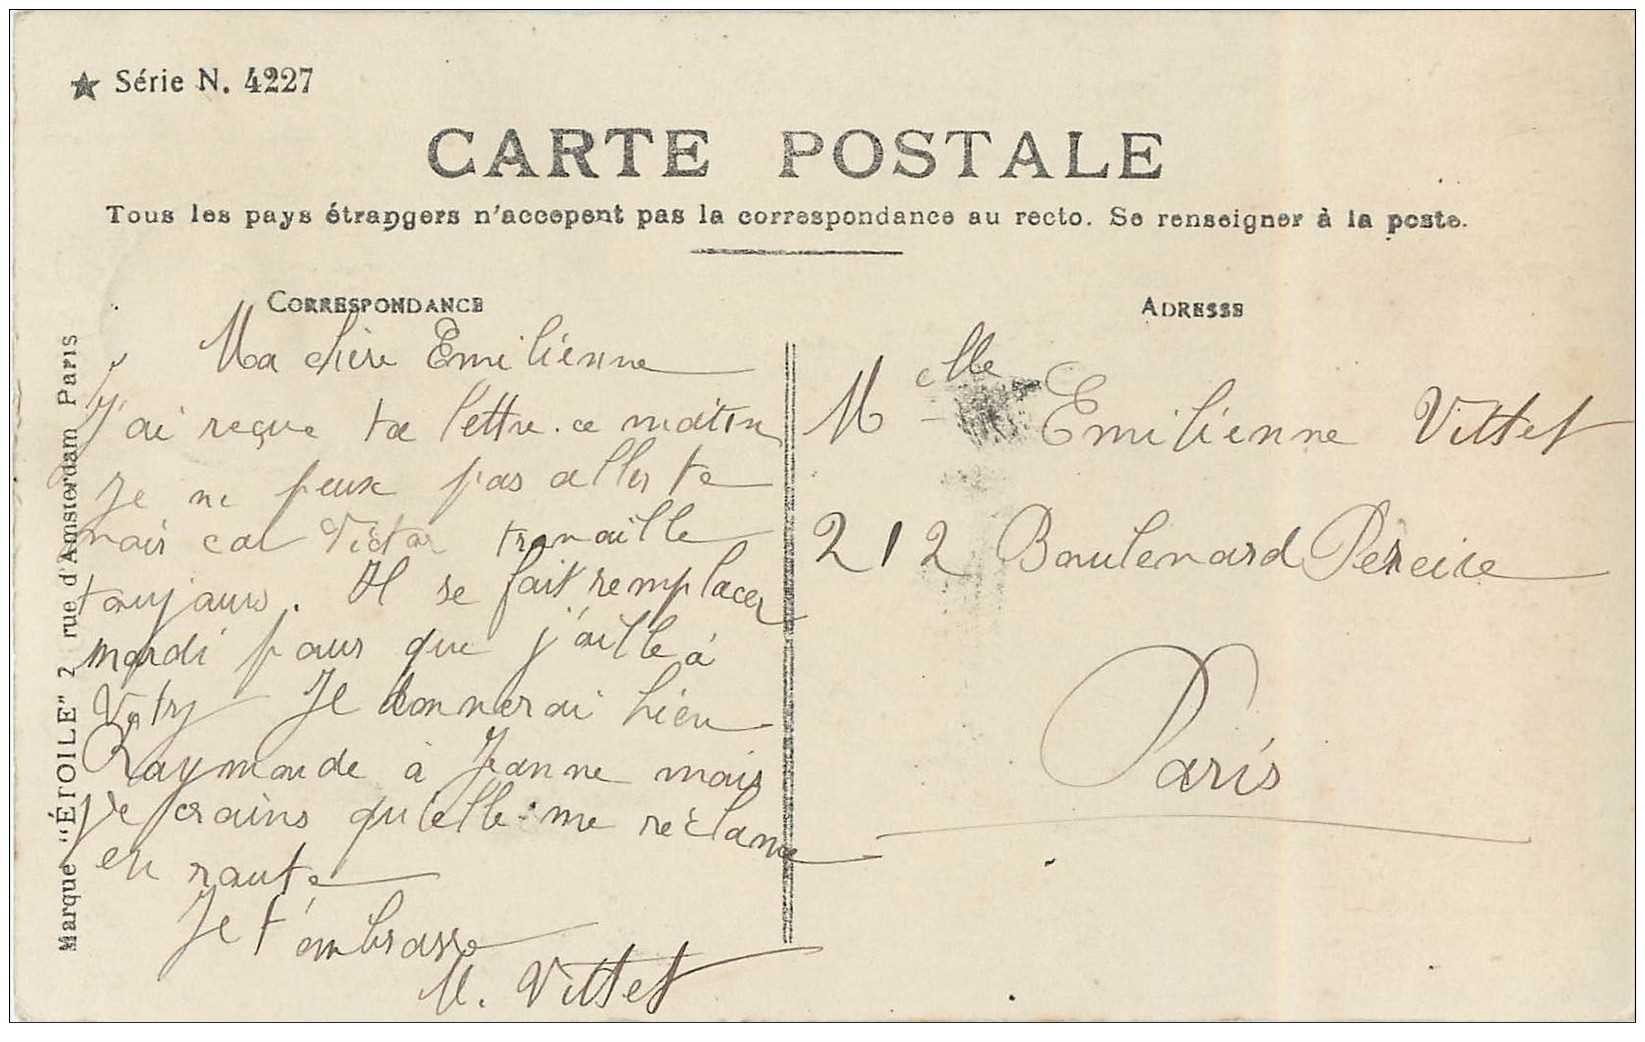 ★ Série N. 4227
CARTE POSTALE
Tous les pays étrangers n'accepent pas la correspondance au recto. Se renseigner à la poste.
CORRESPONDANCE
Ma chère Emilienne
J'ai reçue ta lettre ce matin
Je ne peux pas aller te
car Victor travaille
toujours. Il se fait remplacer
mardi pour que j'aille à
Vitry Je donnerai bien
Raymonde à Jeanne mais
je crains qu'elle me réclame
en route
Je t'embrasse
M. Vittet
ADRESSE
Melle Emilienne Vittet
212 Boulevard Pereire
Paris
Marque "ÉTOILE" 2 rue d'Amsterdam Paris